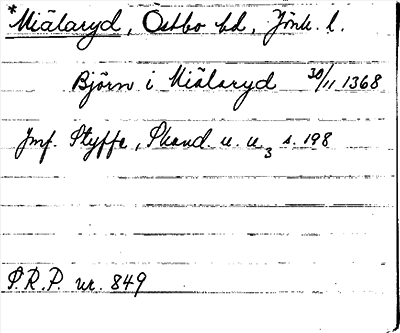 *Miälaryd, Östbo hd, Jönk. l.
Björn i Miälaryd 30/11 1368
Jmf. Styffe, Skand. u. u.3 s. 198
S.R.P. nr. 849